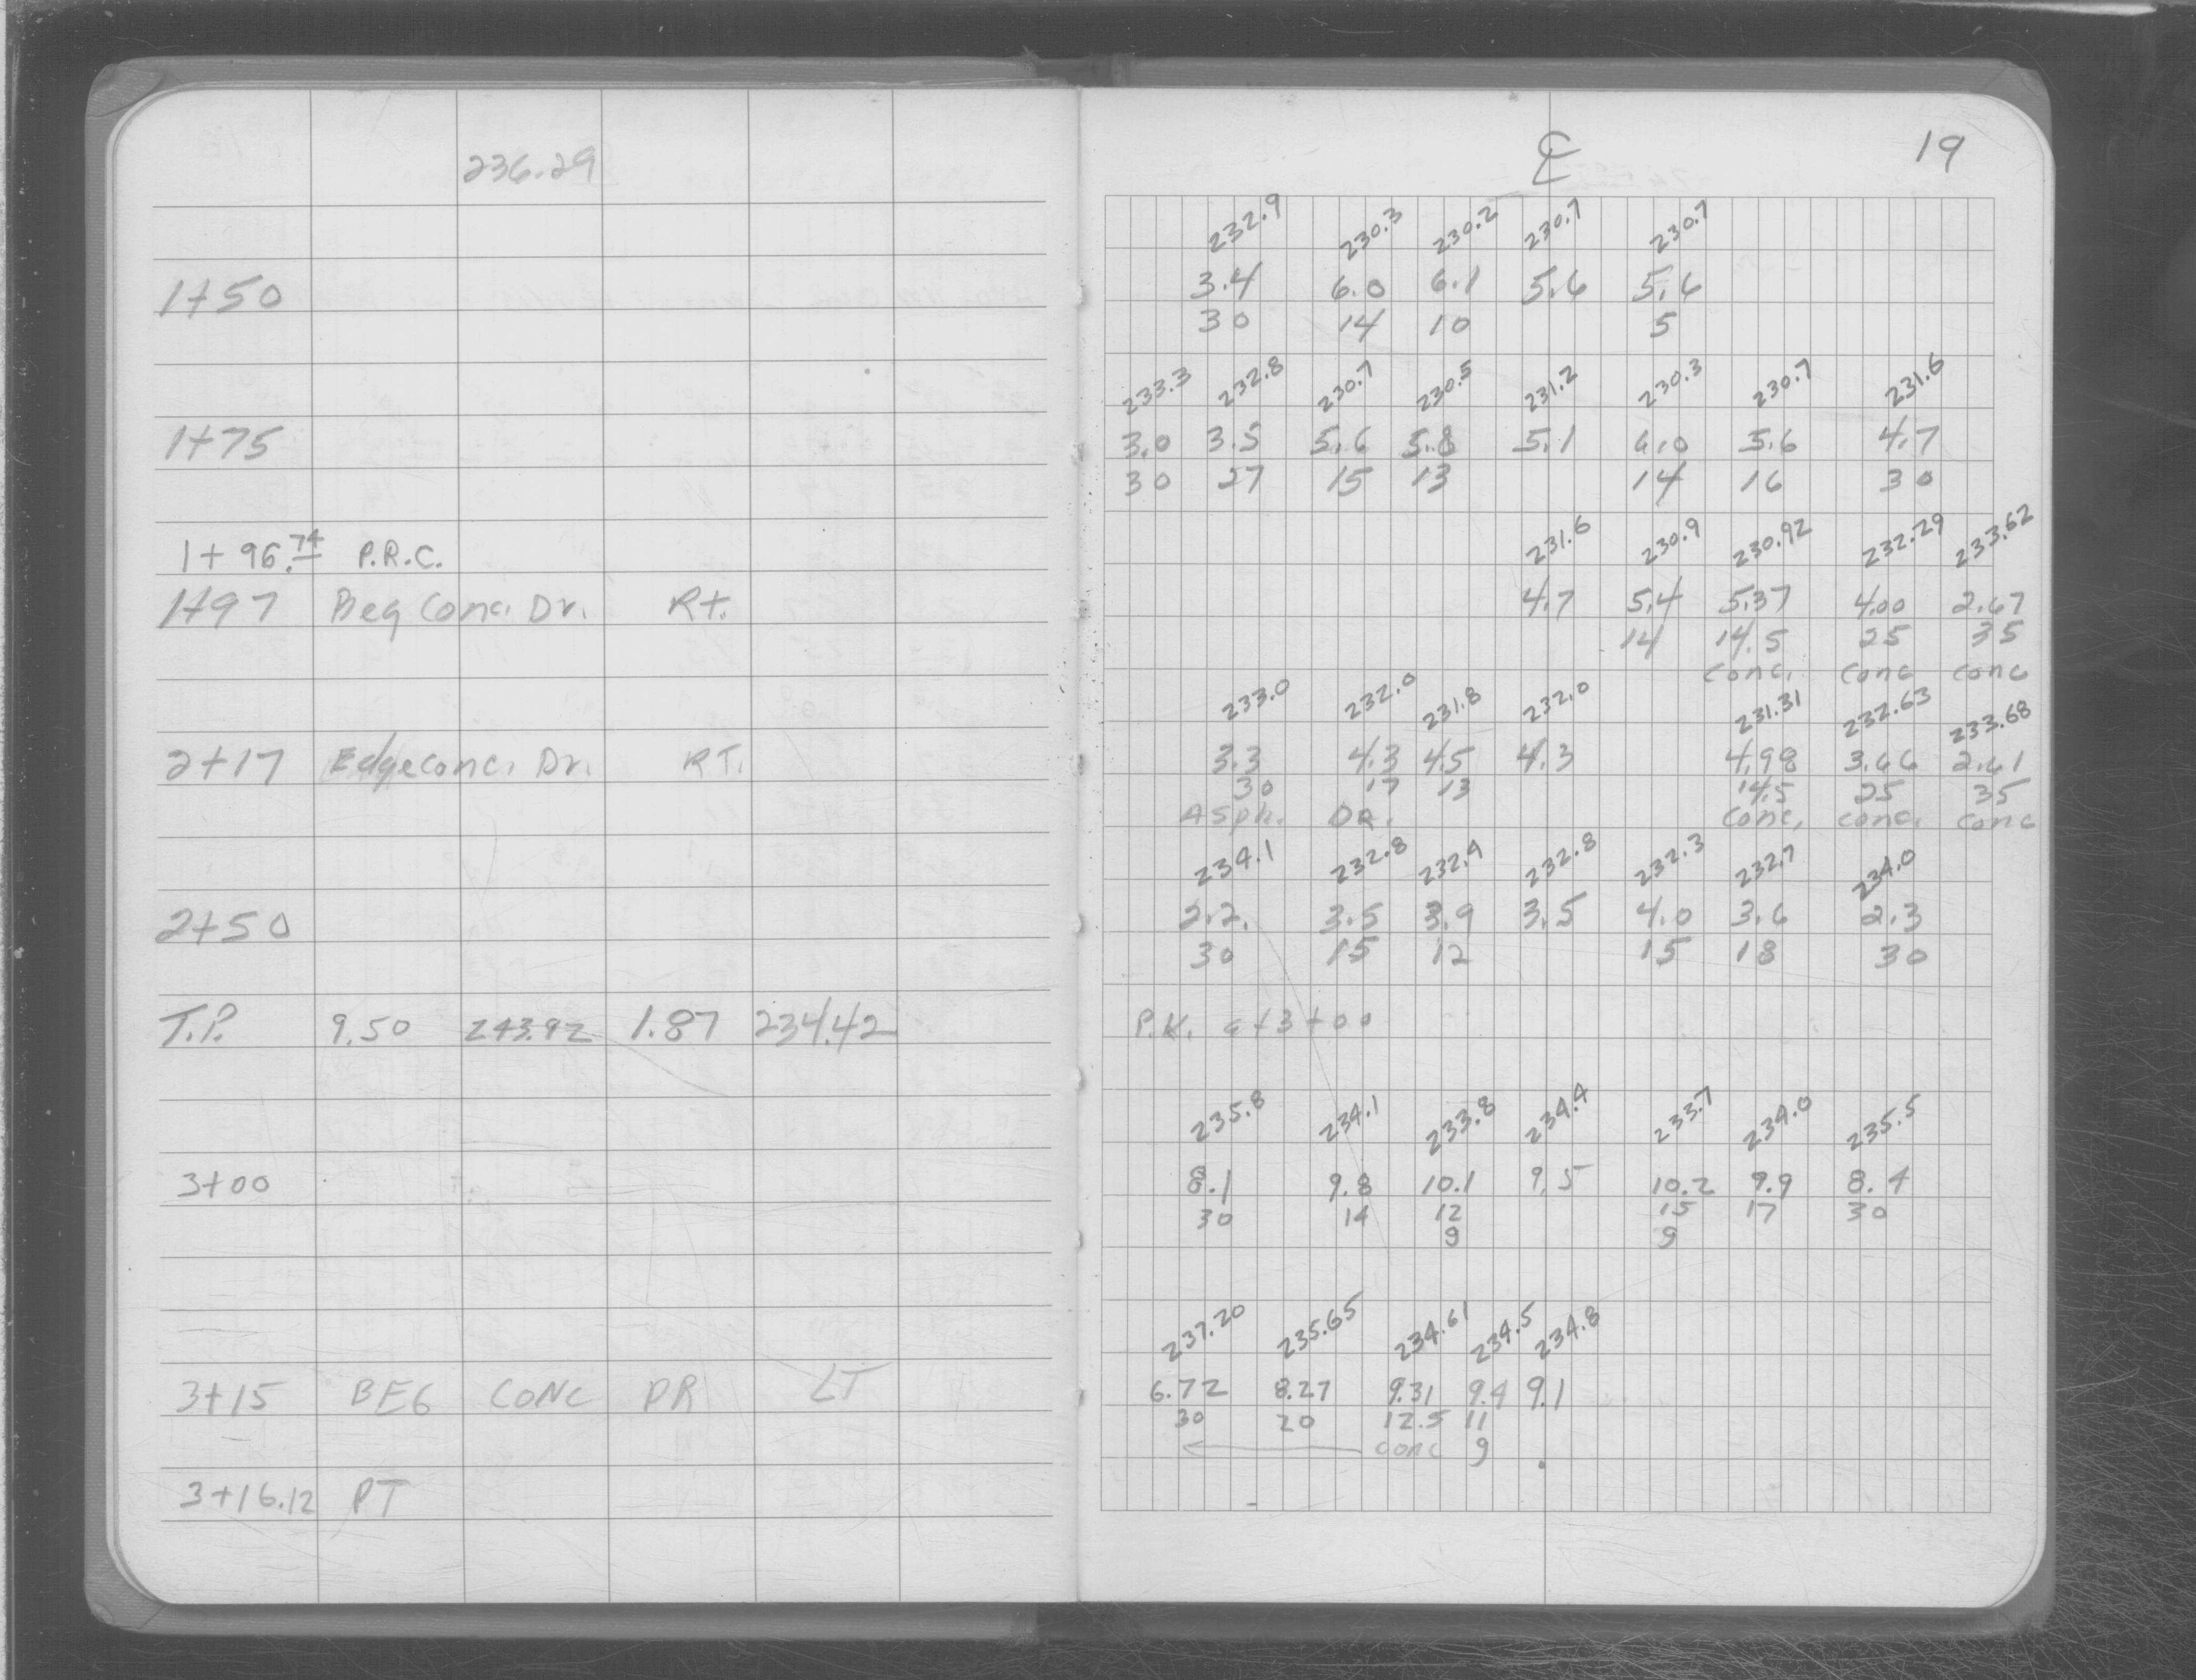 236.29
1+50
1+75
1+96.74 P.R.C.
1+97 Beg Conc. Dr. Rt.
2+17 Edge Conc. Dr. RT.
2+50
T.P. 9.50 243.92 1.87 234.42
3+00
3+15 BEG CONC DR LT
3+16.12 PT
℄ 19
232.9 230.3 230.2 230.7 230.7
3.4 6.0 6.1 5.6 5.6
30 14 10 5
233.3 232.8 230.7 230.5 231.2 230.3 230.7 231.6
3.0 3.5 5.6 5.8 5.1 6.0 5.6 4.7
30 27 15 13 14 16 30
231.6 230.9 230.92 232.29 233.62
4.7 5.4 5.37 4.00 2.67
14 14.5 25 35
Conc. Conc Conc
233.0 232.0 231.8 232.0 231.31 232.63 233.68
3.3 4.3 4.5 4.3 4.98 3.66 2.61
30 17 13 14.5 25 35
Asph. DR. Conc. Conc. Conc
234.1 232.8 232.4 232.8 232.3 232.7 234.0
2.2. 3.5 3.9 3.5 4.0 3.6 2.3
30 15 12 15 18 30
P.K. at 3+00
235.8 234.1 233.8 234.4 233.7 234.0 235.5
8.1 9.8 10.1 9.5 10.2 9.9 8.4
30 14 12 15 17 30
9 9
237.20 235.65 234.61 234.5 234.8
6.72 8.27 9.31 9.4 9.1
30 20 12.5 11
← conc 9